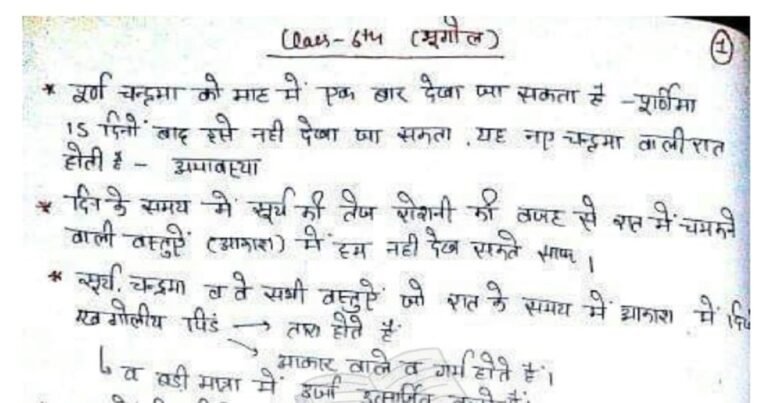 Class - 6th (भूगोल)
1
* पूर्ण चन्द्रमा को माह में एक बार देखा जा सकता है - पूर्णिमा
15 दिनों बाद इसे नही देखा जा सकता. यह नए चन्द्रमा वाली रात
होती है - अमावस्या
* दिन के समय में सूर्य की तेज रोशनी की वजह से रात में चमकने
वाली वस्तुऐं (आकाश) में हम नही देख सकते
* सूर्य, चन्द्रमा व वे सभी वस्तुऐं जो रात के समय में आकाश में
खगोलीय पिंड → तारा होते हैं
→ आकार वाले व गर्म होते हैं।
↳ व बडी मात्रा में ऊर्जा उत्सर्जित